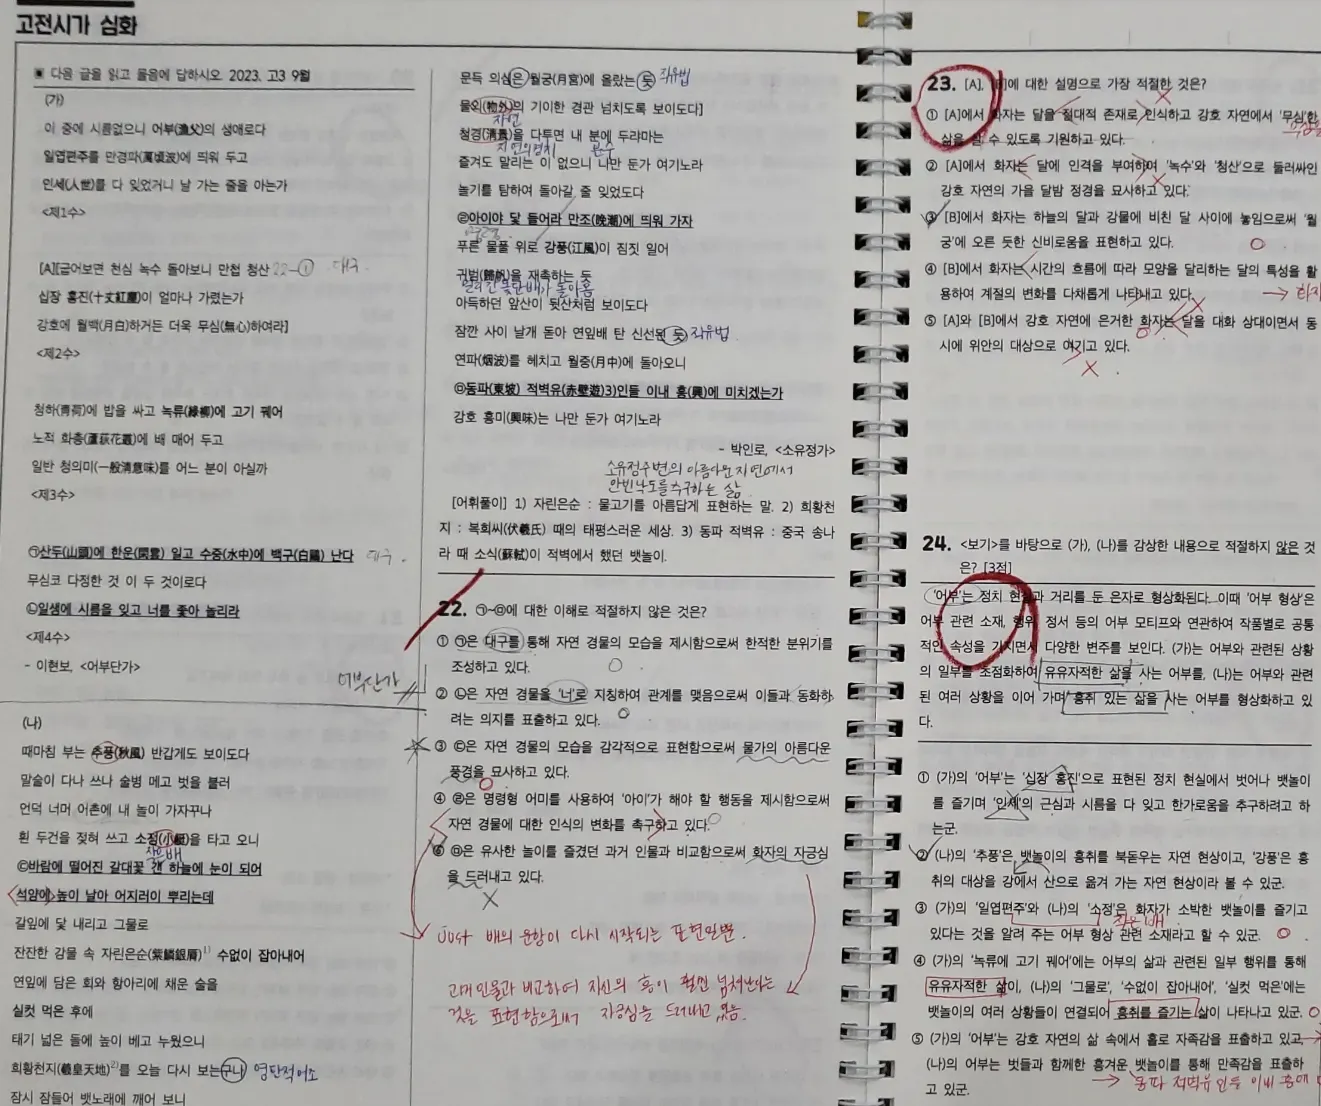 고전시가 심화
▣ 다음 글을 읽고 물음에 답하시오. 2023. 고3 9월
(가)
이 중에 시름없으니 어부(漁父)의 생애로다
일엽편주를 만경파(萬頃波)에 띄워 두고
인세(人世)를 다 잊었거니 날 가는 줄을 아는가
<제1수>
[A][굽어보면 천심 녹수 돌아보니 만첩 청산 22-① 대구.
십장 홍진(十丈紅塵)이 얼마나 가렸는가
강호에 월백(月白)하거든 더욱 무심(無心)하여라]
<제2수>
청하(靑荷)에 밥을 싸고 녹류(綠柳)에 고기 꿰어
노적 화총(蘆荻花叢)에 배 매어 두고
일반 청의미(一般淸意味)를 어느 분이 아실까
<제3수>
㉠산두(山頭)에 한운(閑雲) 일고 수중(水中)에 백구(白鷗) 난다 대구.
무심코 다정한 것 이 두 것이로다
㉡일생에 시름을 잊고 너를 좇아 놀리라
<제4수>
- 이현보, <어부단가>
어부단가
(나)
때마침 부는 추풍(秋風) 반갑게도 보이도다
말술이 다나 쓰나 술병 메고 벗을 불러
언덕 너머 어촌에 내 놀이 가자꾸나
흰 두건을 젖혀 쓰고 소정(小艇)을 타고 오니
작은배
㉢바람에 떨어진 갈대꽃 갠 하늘에 눈이 되어
석양에 높이 날아 어지러이 뿌리는데
갈잎에 닻 내리고 그물로
잔잔한 강물 속 자린은순(紫鱗銀脣)1) 수없이 잡아내어
연잎에 담은 회와 항아리에 채운 술을
실컷 먹은 후에
태기 넓은 돌에 높이 베고 누웠으니
희황천지(羲皇天地)2)를 오늘 다시 보는구나 영탄적어조
잠시 잠들어 뱃노래에 깨어 보니
문득 의심은 월궁(月宮)에 올랐는 듯 직유법
물외(物外)의 기이한 경관 넘치도록 보이도다]
자연
청경(清景)을 다투면 내 분에 두랴마는
자연의경치 분수
즐겨도 말리는 이 없으니 나만 둔가 여기노라
놀기를 탐하여 돌아갈 줄 잊었도다
㉣아이야 닻 들어라 만조(晩潮)에 띄워 가자
푸른 물풀 위로 강풍(江風)이 짐짓 일어
귀범(歸帆)을 재촉하는 듯
아득하던 앞산이 뒷산처럼 보이도다
잠깐 사이 날개 돋아 연잎배 탄 신선된 듯 직유법
연파(烟波)를 헤치고 월중(月中)에 돌아오니
㉤동파(東坡) 적벽유(赤壁遊)3)인들 이내 흥(興)에 미치겠는가
강호 흥미(興味)는 나만 둔가 여기노라
- 박인로, <소유정가>
소유정주변의 아름다운자연에서
안빈낙도를추구하는 삶
[어휘풀이] 1) 자린은순 : 물고기를 아름답게 표현하는 말. 2) 희황천
지 : 복희씨(伏羲氏) 때의 태평스러운 세상. 3) 동파 적벽유 : 중국 송나
라 때 소식(蘇軾)이 적벽에서 했던 뱃놀이.
22. ㉠~㉤에 대한 이해로 적절하지 않은 것은?
① ㉠은 대구를 통해 자연 경물의 모습을 제시함으로써 한적한 분위기를
조성하고 있다.
② ㉡은 자연 경물을 '너'로 지칭하여 관계를 맺음으로써 이들과 동화하
려는 의지를 표출하고 있다.
③ ㉢은 자연 경물의 모습을 감각적으로 표현함으로써 물가의 아름다운
풍경을 묘사하고 있다.
④ ㉣은 명령형 어미를 사용하여 '아이'가 해야 할 행동을 제시함으로써
자연 경물에 대한 인식의 변화를 촉구하고 있다.
⑤ ㉤은 유사한 놀이를 즐겼던 과거 인물과 비교함으로써 화자의 자긍심
을 드러내고 있다.
Just 배의 운항이 다시 시작되는 표현일뿐.
고대 인물과 비교하여 자신의 흥이 훨씬 넘쳐난다는
것을 표현함으로써 자긍심을 드러내고 있음.
23. [A], [B]에 대한 설명으로 가장 적절한 것은?
① [A]에서 화자는 달을 절대적 존재로 인식하고 강호 자연에서 '무심'한
삶을 살 수 있도록 기원하고 있다.
② [A]에서 화자는 달에 인격을 부여하여 '녹수'와 '청산'으로 둘러싸인
강호 자연의 가을 달밤 정경을 묘사하고 있다.
③ [B]에서 화자는 하늘의 달과 강물에 비친 달 사이에 놓임으로써 '월
궁'에 오른 듯한 신비로움을 표현하고 있다.
④ [B]에서 화자는 시간의 흐름에 따라 모양을 달리하는 달의 특성을 활
용하여 계절의 변화를 다채롭게 나타내고 있다.
⑤ [A]와 [B]에서 강호 자연에 은거한 화자는 달을 대화 상대이면서 동
시에 위안의 대상으로 여기고 있다.
24. <보기>를 바탕으로 (가), (나)를 감상한 내용으로 적절하지 않은 것
은? [3점]
'어부'는 정치 현실과 거리를 둔 은자로 형상화된다. 이때 '어부 형상'은
어부 관련 소재, 행위, 정서 등의 어부 모티프와 연관하여 작품별로 공통
적인 속성을 가지면서 다양한 변주를 보인다. (가)는 어부와 관련된 상황
의 일부를 초점화하여 유유자적한 삶을 사는 어부를, (나)는 어부와 관련
된 여러 상황을 이어 가며 흥취 있는 삶을 사는 어부를 형상화하고 있
다.
① (가)의 '어부'는 '십장 홍진'으로 표현된 정치 현실에서 벗어나 뱃놀이
를 즐기며 '인세'의 근심과 시름을 다 잊고 한가로움을 추구하려고 하
는군.
② (나)의 '추풍'은 뱃놀이의 흥취를 북돋우는 자연 현상이고, '강풍'은 흥
취의 대상을 강에서 산으로 옮겨 가는 자연 현상이라 볼 수 있군.
③ (가)의 '일엽편주'와 (나)의 '소정'은 화자가 소박한 뱃놀이를 즐기고
작은 배
있다는 것을 알려 주는 어부 형상 관련 소재라고 할 수 있군.
④ (가)의 '녹류에 고기 꿰어'에는 어부의 삶과 관련된 일부 행위를 통해
유유자적한 삶이, (나)의 '그물로', '수없이 잡아내어', '실컷 먹은'에는
뱃놀이의 여러 상황들이 연결되어 흥취를 즐기는 삶이 나타나고 있군.
⑤ (가)의 '어부'는 강호 자연의 삶 속에서 홀로 자족감을 표출하고 있고,
(나)의 어부는 벗들과 함께한 흥겨운 뱃놀이를 통해 만족감을 표출하
고 있군.
→ 동파 적벽유인들 이내 흥에